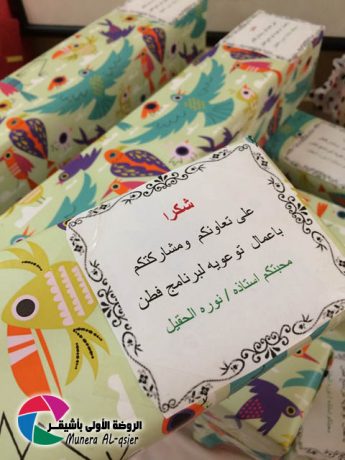 شكرا
على تعاونكم ومشاركتكم
باعمال توعويه لبرنامج فطن
محبتكم استاذه / نوره الحقيل
الروضة الأولى بأشيقر
Munera AL-qsier